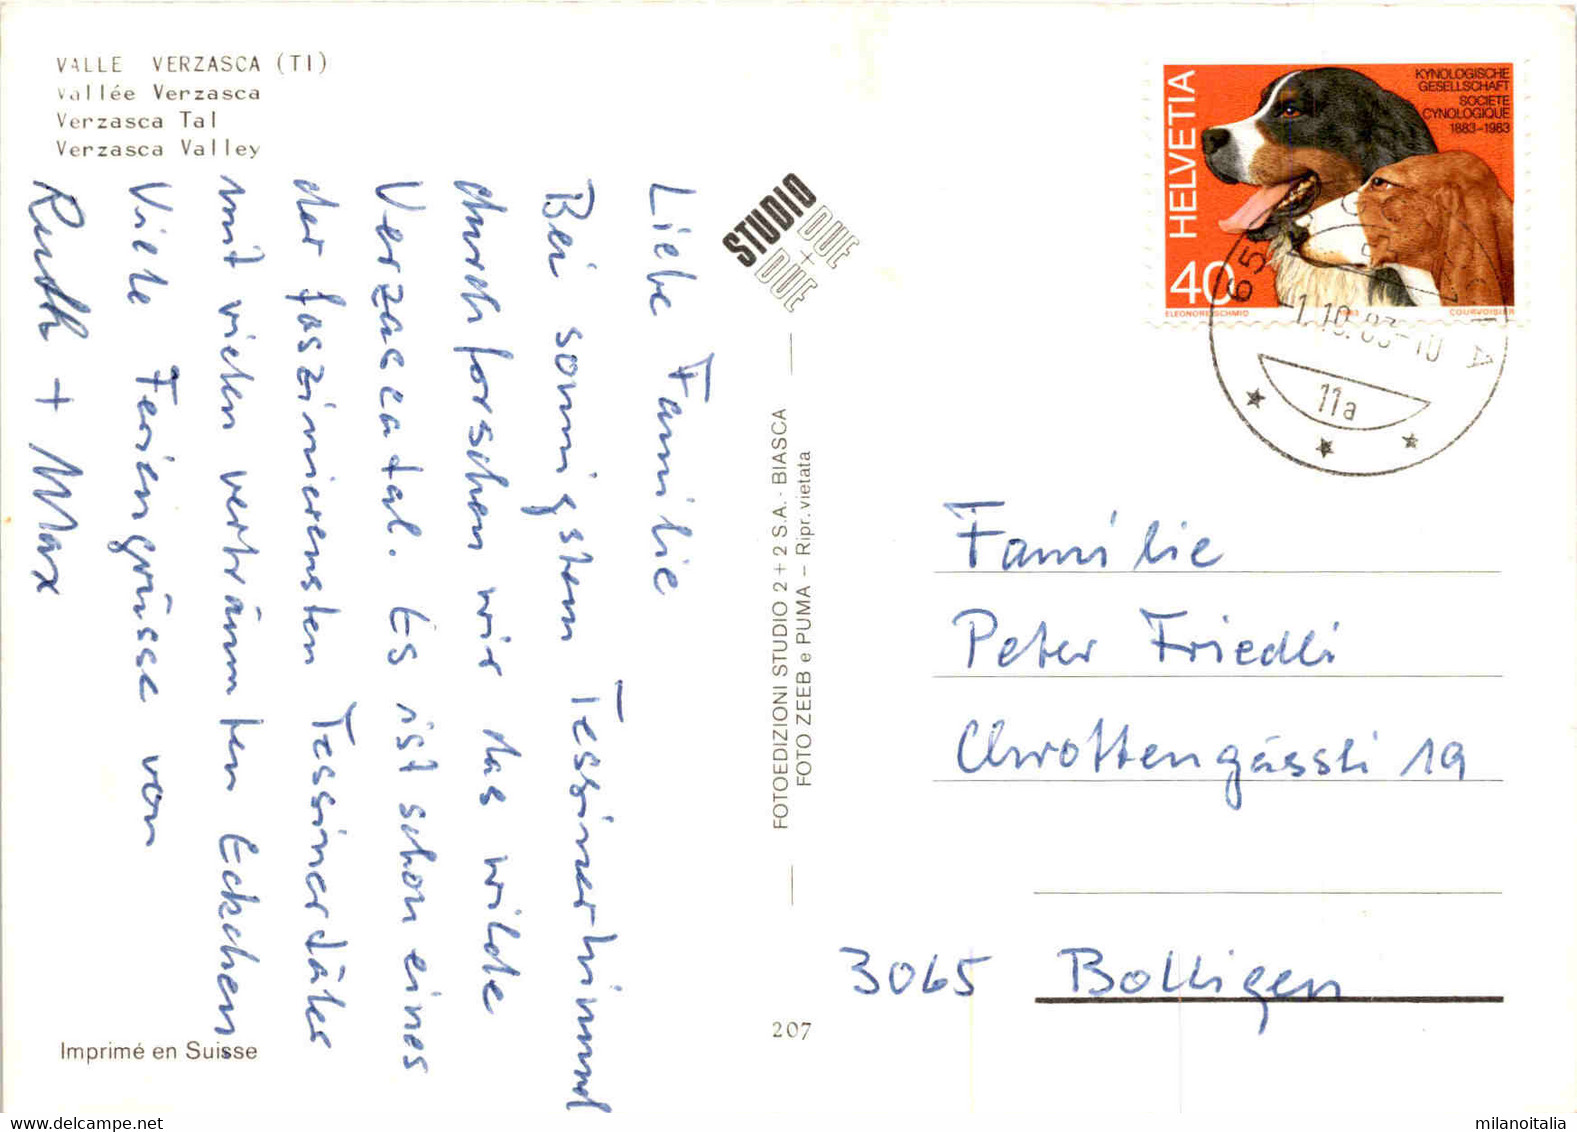 VALLE VERZASCA (TI)
Vallée Verzasca
Verzasca Tal
Verzasca Valley
Liebe Familie
Bei sonnigstem Tessinerhimmel
durchforschen wir das wilde
Verzascatal. Es ist schon eines
der faszinierensten Tessinertäler
mit vielen verträumten Eckchen
Viele Feriengrüsse von
Ruth + Max
Imprimé en Suisse
STUDIO
DUE
+
DUE
FOTOEDIZIONI STUDIO 2 + 2 S.A. - BIASCA
FOTO ZEEB e PUMA – Ripr. vietata
207
HELVETIA
KYNOLOGISCHE
GESELLSCHAFT
SOCIETE
CYNOLOGIQUE
1883-1983
40
ELEONORE SCHMID
1983
COURVOISIER
-1.10.83-10
11a
Familie
Peter Friedli
Chrottengässli 19
3065 Bolligen
milanoitalia